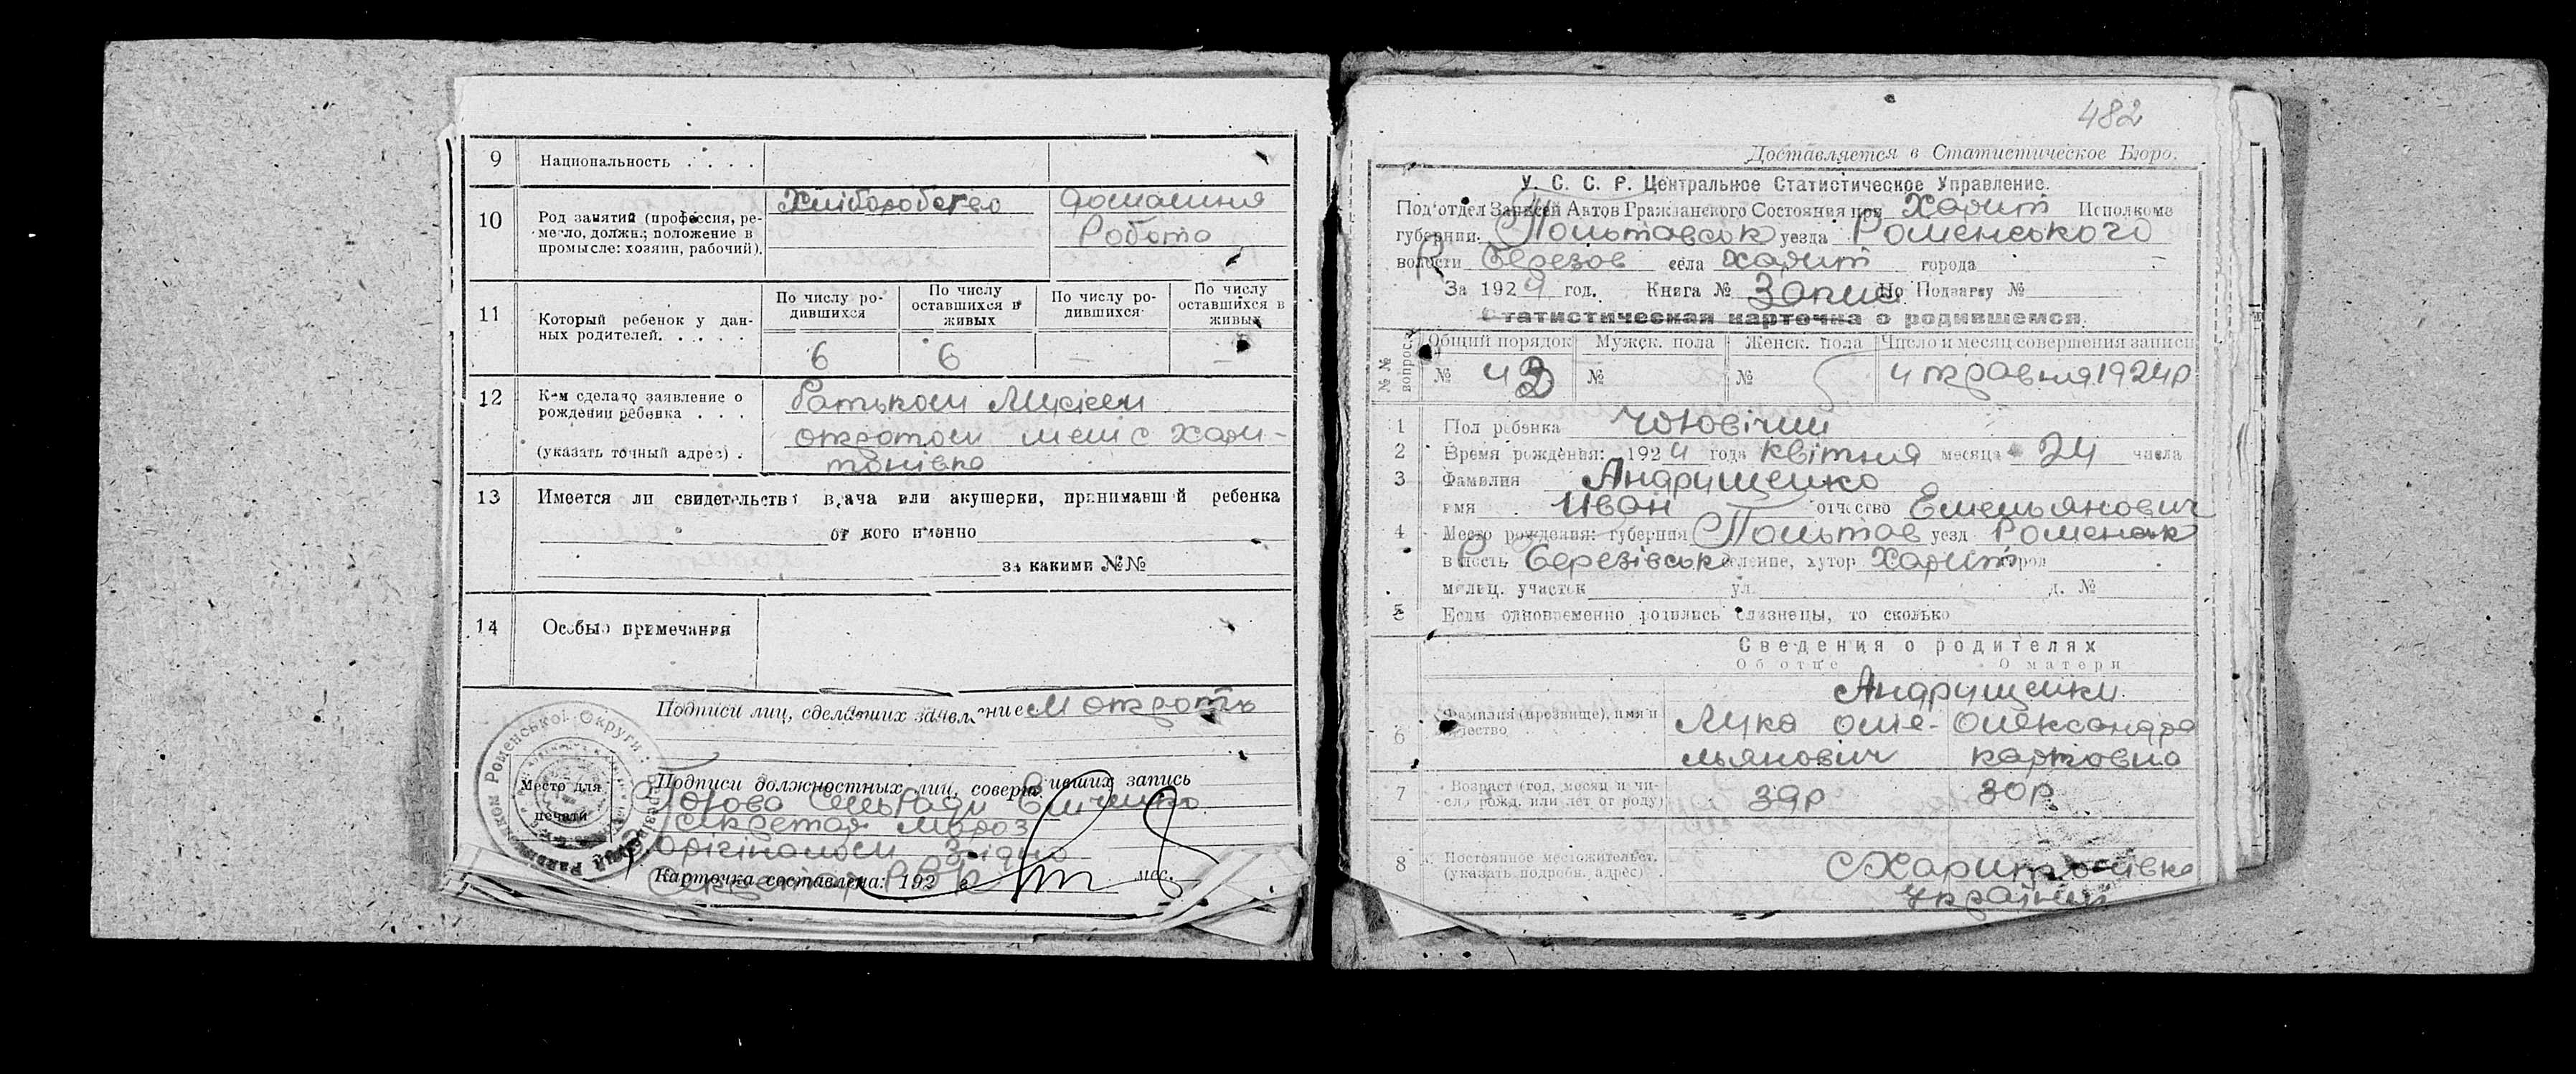 9 Национальность . . . .
10 Род занятий (профессия, ре-
месло, должн.; положение в
промысле: хозяин, рабочий).
Хліборобство
домашня
Робота
11 Который ребенок у дан-
ных родителей. . . . .
По числу ро-
дившихся
По числу
оставшихся в
живых
По числу ро-
дившихся
По числу
оставшихся в
живых
6 6 — —
12 Кем сделано заявление о
рождении ребенка . . .
(указать точный адрес) .
Батьком
меш с Хари-
тонівка
13 Имеется ли свидетельство врача или акушерки, принимавшей ребенка
от кого именно
за какими №№
14 Особые примечания
Подписи лиц, сделавших заявление
Место для
печати
Роменської Округи
Подписи должностных лиц, совершивших запись
Голова Сельради
Секретар Мороз
З оригіналом згідно
Карточка составлена: 192 г. мес.
482
Доставляется в Статистическое Бюро.
У. С. С. Р. Центральное Статистическое Управление.
Под'отдел Записей Актов Гражданского Состояния при Харит Исполкоме
губернии Польтавськ уезда Роменського
волости Березов села Харит города
За 1924 год. Книга № Запис По Подзагсу №
Статистическая карточка о родившемся.
№№ вопроса
Общий порядок Мужск. пола Женск. пола Число и месяц совершения записи
№ 43 № № 4 травня 1924р
1 Пол ребенка Чоловічий
2 Время рождения: 1924 года квітня месяца 24 числа
3 Фамилия Андрущенко
имя Иван отчество Емельянович
4 Место рождения: губерния Польтав уезд Роменськ
волость Березівськ селение, хутор Харит город
милиц. участок ул. д. №
5 Если одновременно родились близнецы, то сколько
Сведения о родителях
Об отце О матери
Андрущенки
6 Фамилия (прозвище), имя и
отчество
Лука Оме- Олександра
льянович Карповна
7 Возраст (год, месяц и чи-
сло рожд. или лет от роду)
39р 30р
8 Постоянное местожительст.
(указать подробн. адрес)
С Харитонівка
Україниі